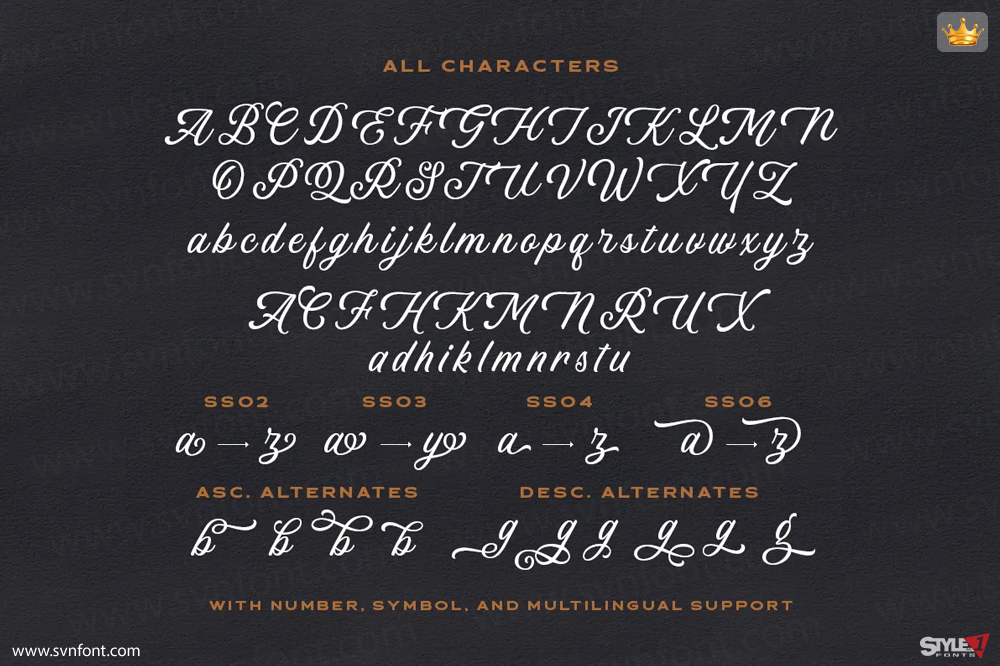 ALL CHARACTERS
A B C D E F G H I J K L M N
O P Q R S T U V W X Y Z
a b c d e f g h i j k l m n o p q r s t u v w x y z
A C F H K M N R U X
a d h i k l m n r s t u
SS02 SS03 SS04 SS06
a → z a → y a → z a → z
ASC. ALTERNATES DESC. ALTERNATES
b b b b g g g g g g
WITH NUMBER, SYMBOL, AND MULTILINGUAL SUPPORT
www.svnfont.com
STYLE 1 FONTS